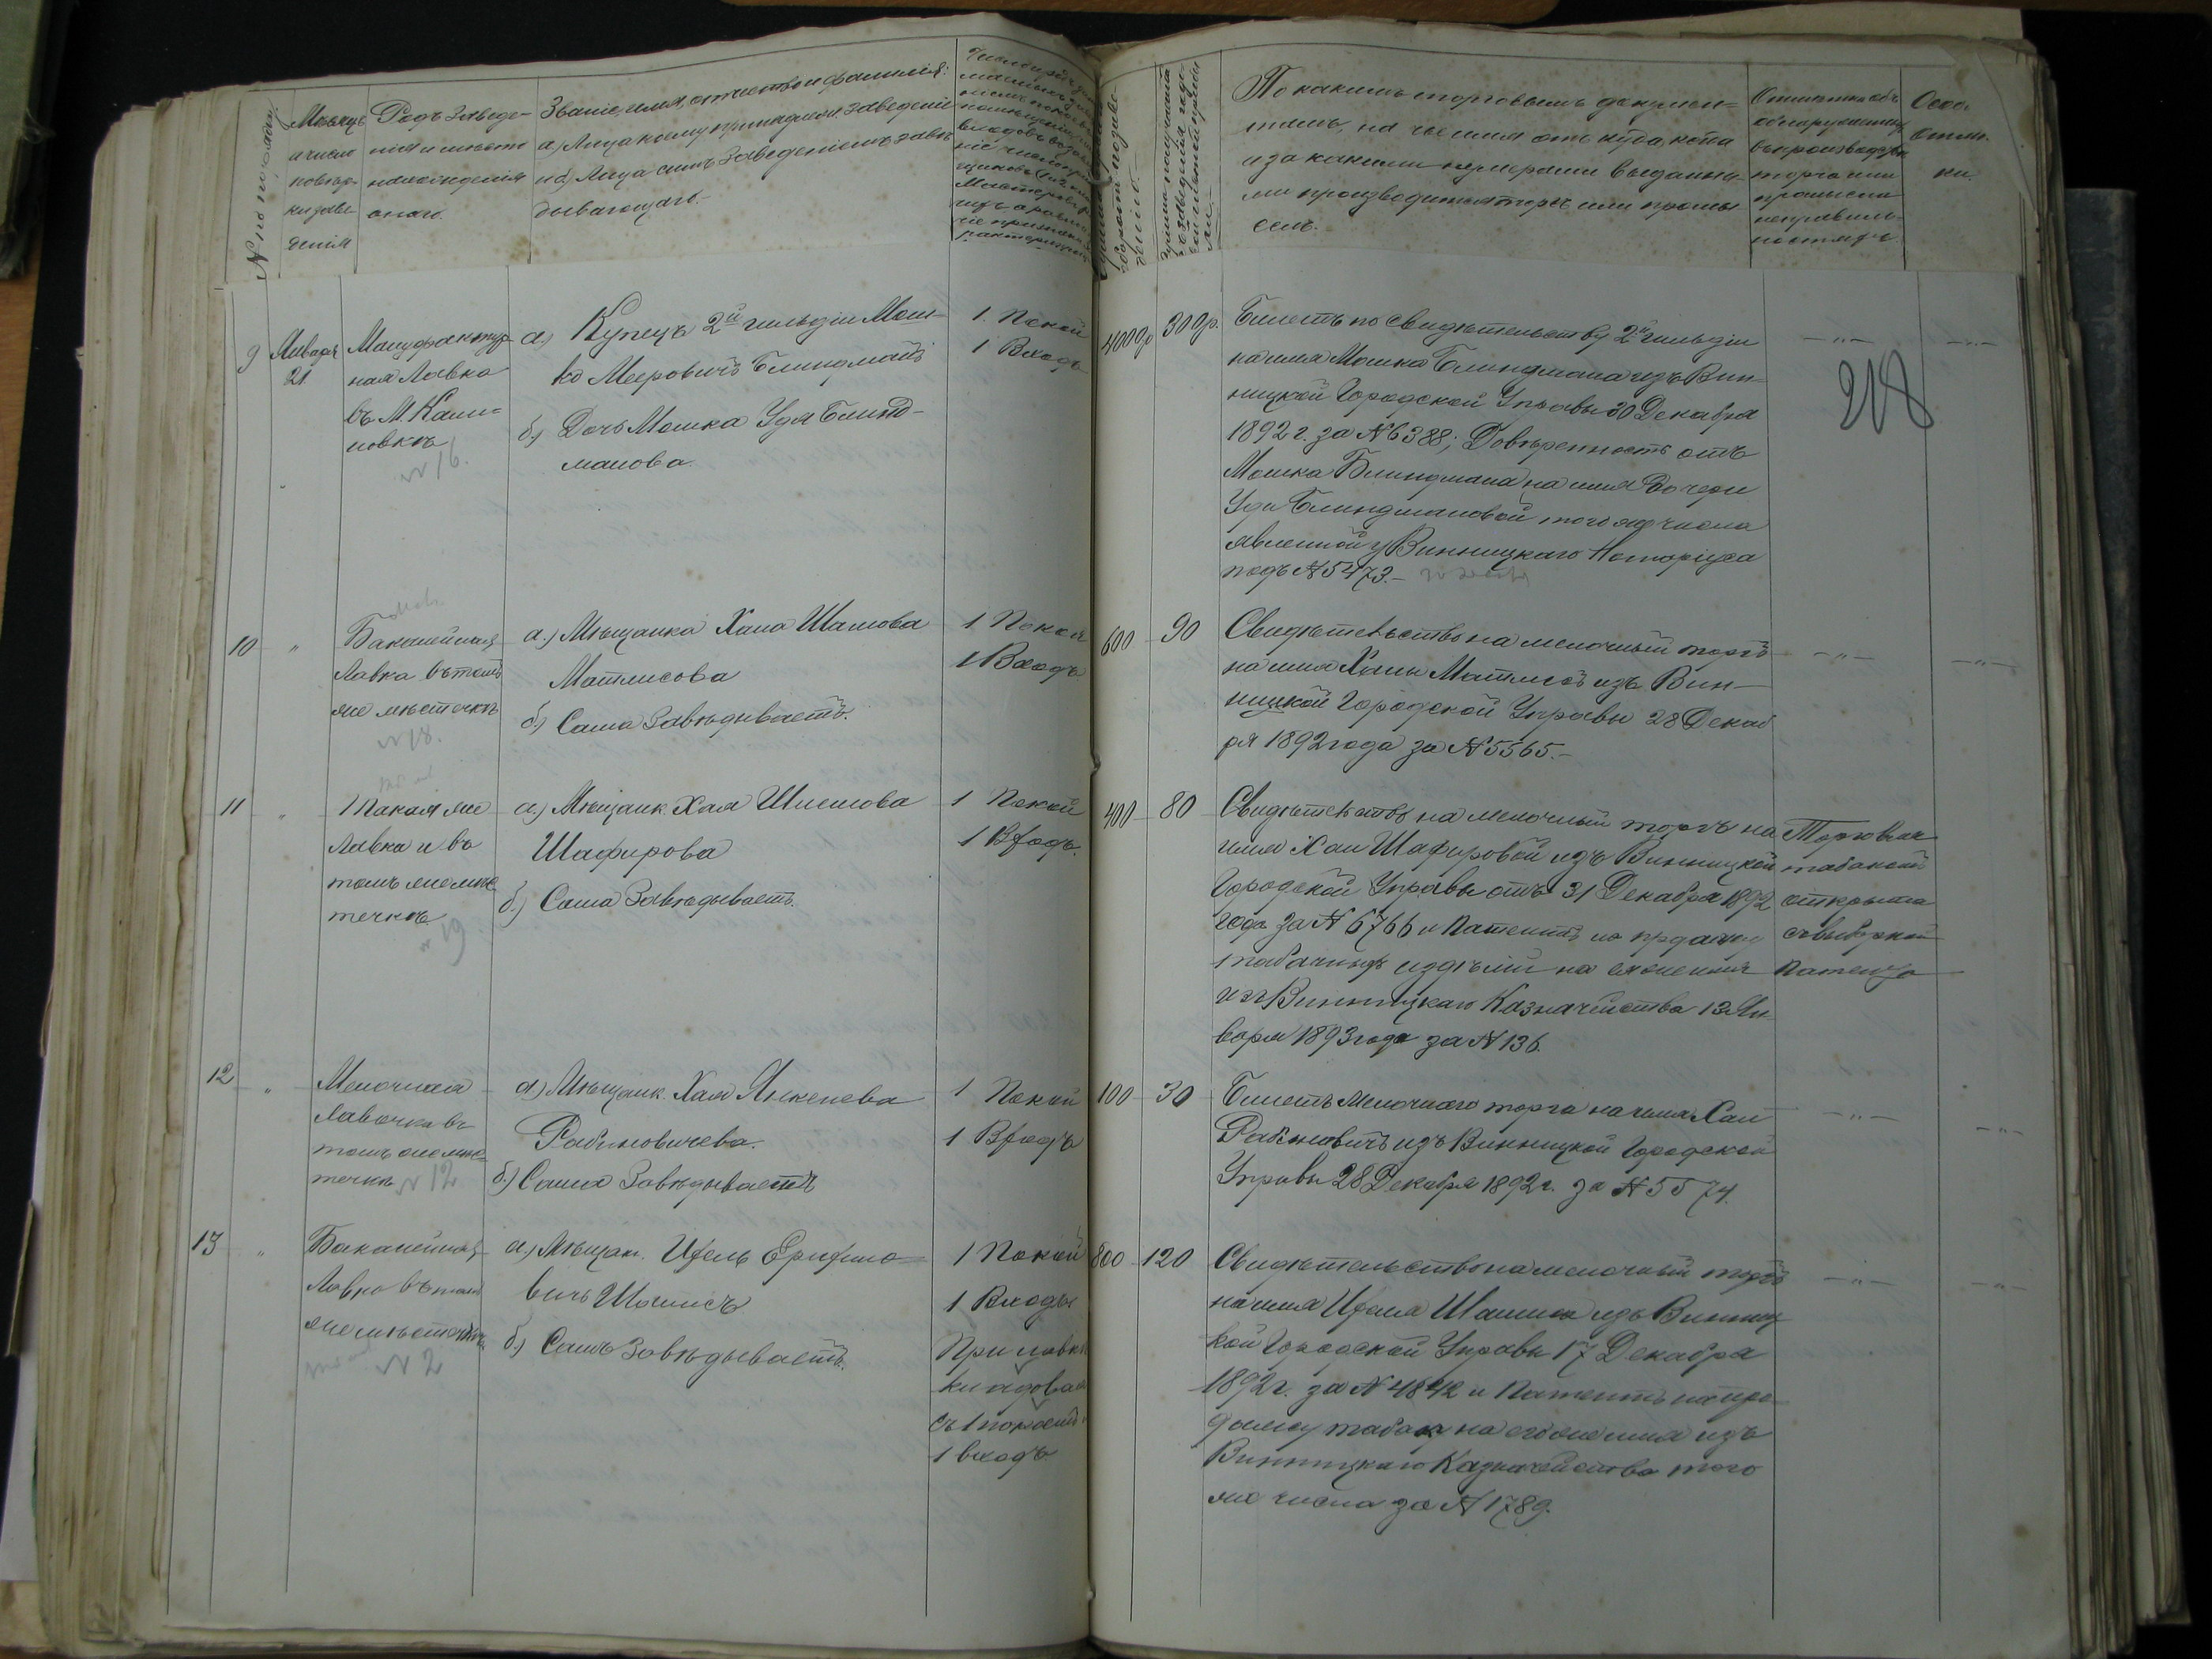 № по порядку.
Мѣсяцъ
и число
повѣр-
ки заве-
денія
Родъ заведе-
нія и мѣсто
нахожденія
онаго.
Званіе, имя, отчество и фамилія:
а) Лица коему принадлеж. заведеніе
и б) Лица симъ заведеніемъ завѣ-
дывающаго.
По какимъ торговымъ докумен-
тамъ, на чье имя отъ куда, когда
и за какими нумерами выданны-
ми производится торгъ или промы
селъ.
Отмѣтка объ
обнаруженныхъ
въ производствѣ
торга или
промысла
неправиль-
ностяхъ.
Особ.
отмѣт-
ки.
9
Января
21.
Мануфактур-
ная Лавка
въ М. Кали-
новкѣ
№ 16.
а) Купецъ 2й гильдіи Мош-
ко Меровичъ Блиндманъ
б) Дочь Мошка Удя Блинд-
манова.
1. Покой
1 Входъ
4000р
300р.
Билетъ по свидѣтельству 2й гильдіи
на имя Мошка Блиндмана изъ Вин-
ницкой Городской Управы 30 Декабря
1892 г. за № 6388; Довѣренность отъ
Мошка Блиндмана на имя Дочери
Уди Блиндмановой того же числа
явленной у Винницкаго Нотаріуса
подъ № 5473.-
-„-
-„-
218
10
„
Бакалейная
Лавка въ томъ
же мѣстечкѣ
№ 18.
а.) Мѣщанка Хана Шамова
Матлисова
б.) Сама Завѣдываетъ.
1 Покой
1 Входъ
600
90
Свидѣтельство на мелочный торгъ
на имя Ханы Матлисъ изъ Вин-
ницкой Городской Управы 28 Декаб
ря 1892 года за № 5565.-
-„-
-„-
11
„
Такая же
Лавка и въ
томъ же мѣс
течкѣ
№ 19
а.) Мѣщанк. Хая Шлемова
Шафирова
б.) Сама Завѣдываетъ.
1 Покой
1 Входъ.
400
80
Свидѣтельство на мелочный торгъ на
имя Хаи Шафировой изъ Винницкой
Городской Управы отъ 31 Декабря 1892
года за № 6766 и Патентъ на продажу
табачныхъ издѣлій на ея же имя
изъ Винницкаго Казначейства 13 Ян-
варя 1893 года за № 136.
Торговля
табакомъ
открыта
съ выборкой
Патента
12
„
Мелочная
Лавочка въ
томъ же мѣс-
течкѣ № 12
а) Мѣщанк. Хая Янкелева
Рабиновичева.
б.) Сама Завѣдываетъ
1 Покой
1 Входъ
100
30
Билетъ Мелочнаго торга на имя Хаи
Рабиновичъ изъ Винницкой Городской
Управы 28 Декабря 1892 г. за № 5574.
-„-
-„-
13
„
Бакалейная
Лавка въ томъ
же мѣстечкѣ
№ 2
а.) Мѣщан.
вичъ Шамисъ
б.) Самъ Завѣдываетъ.
1 Покой
1 Входъ
При лавкѣ
кладовая
съ 1 покоемъ
1 входъ
800
120
Свидѣтельство на мелочный торгъ
на имя Шамиса изъ Винниц
кой Городской Управы 17 Декабря
1892 г. за № 4842 и Патентъ на про-
дажу табаку на его же имя изъ
Винницкаго Казначейства того
же числа за № 1789.
-„-
-„-